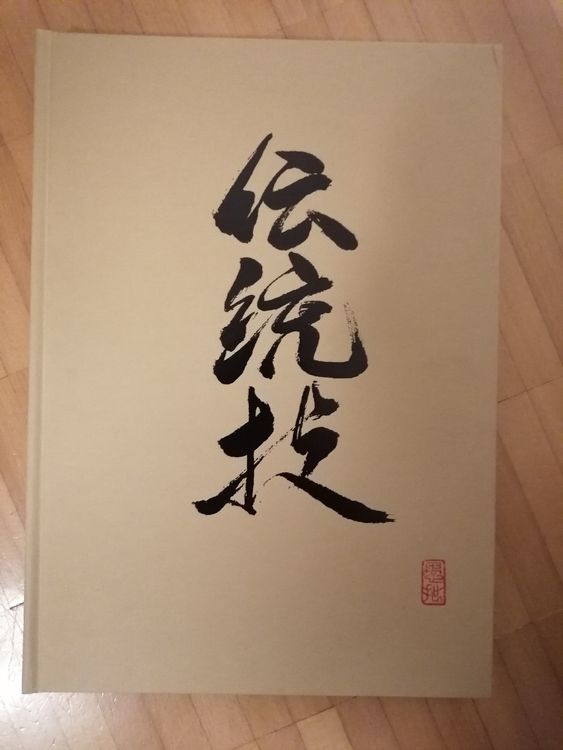 伝統技